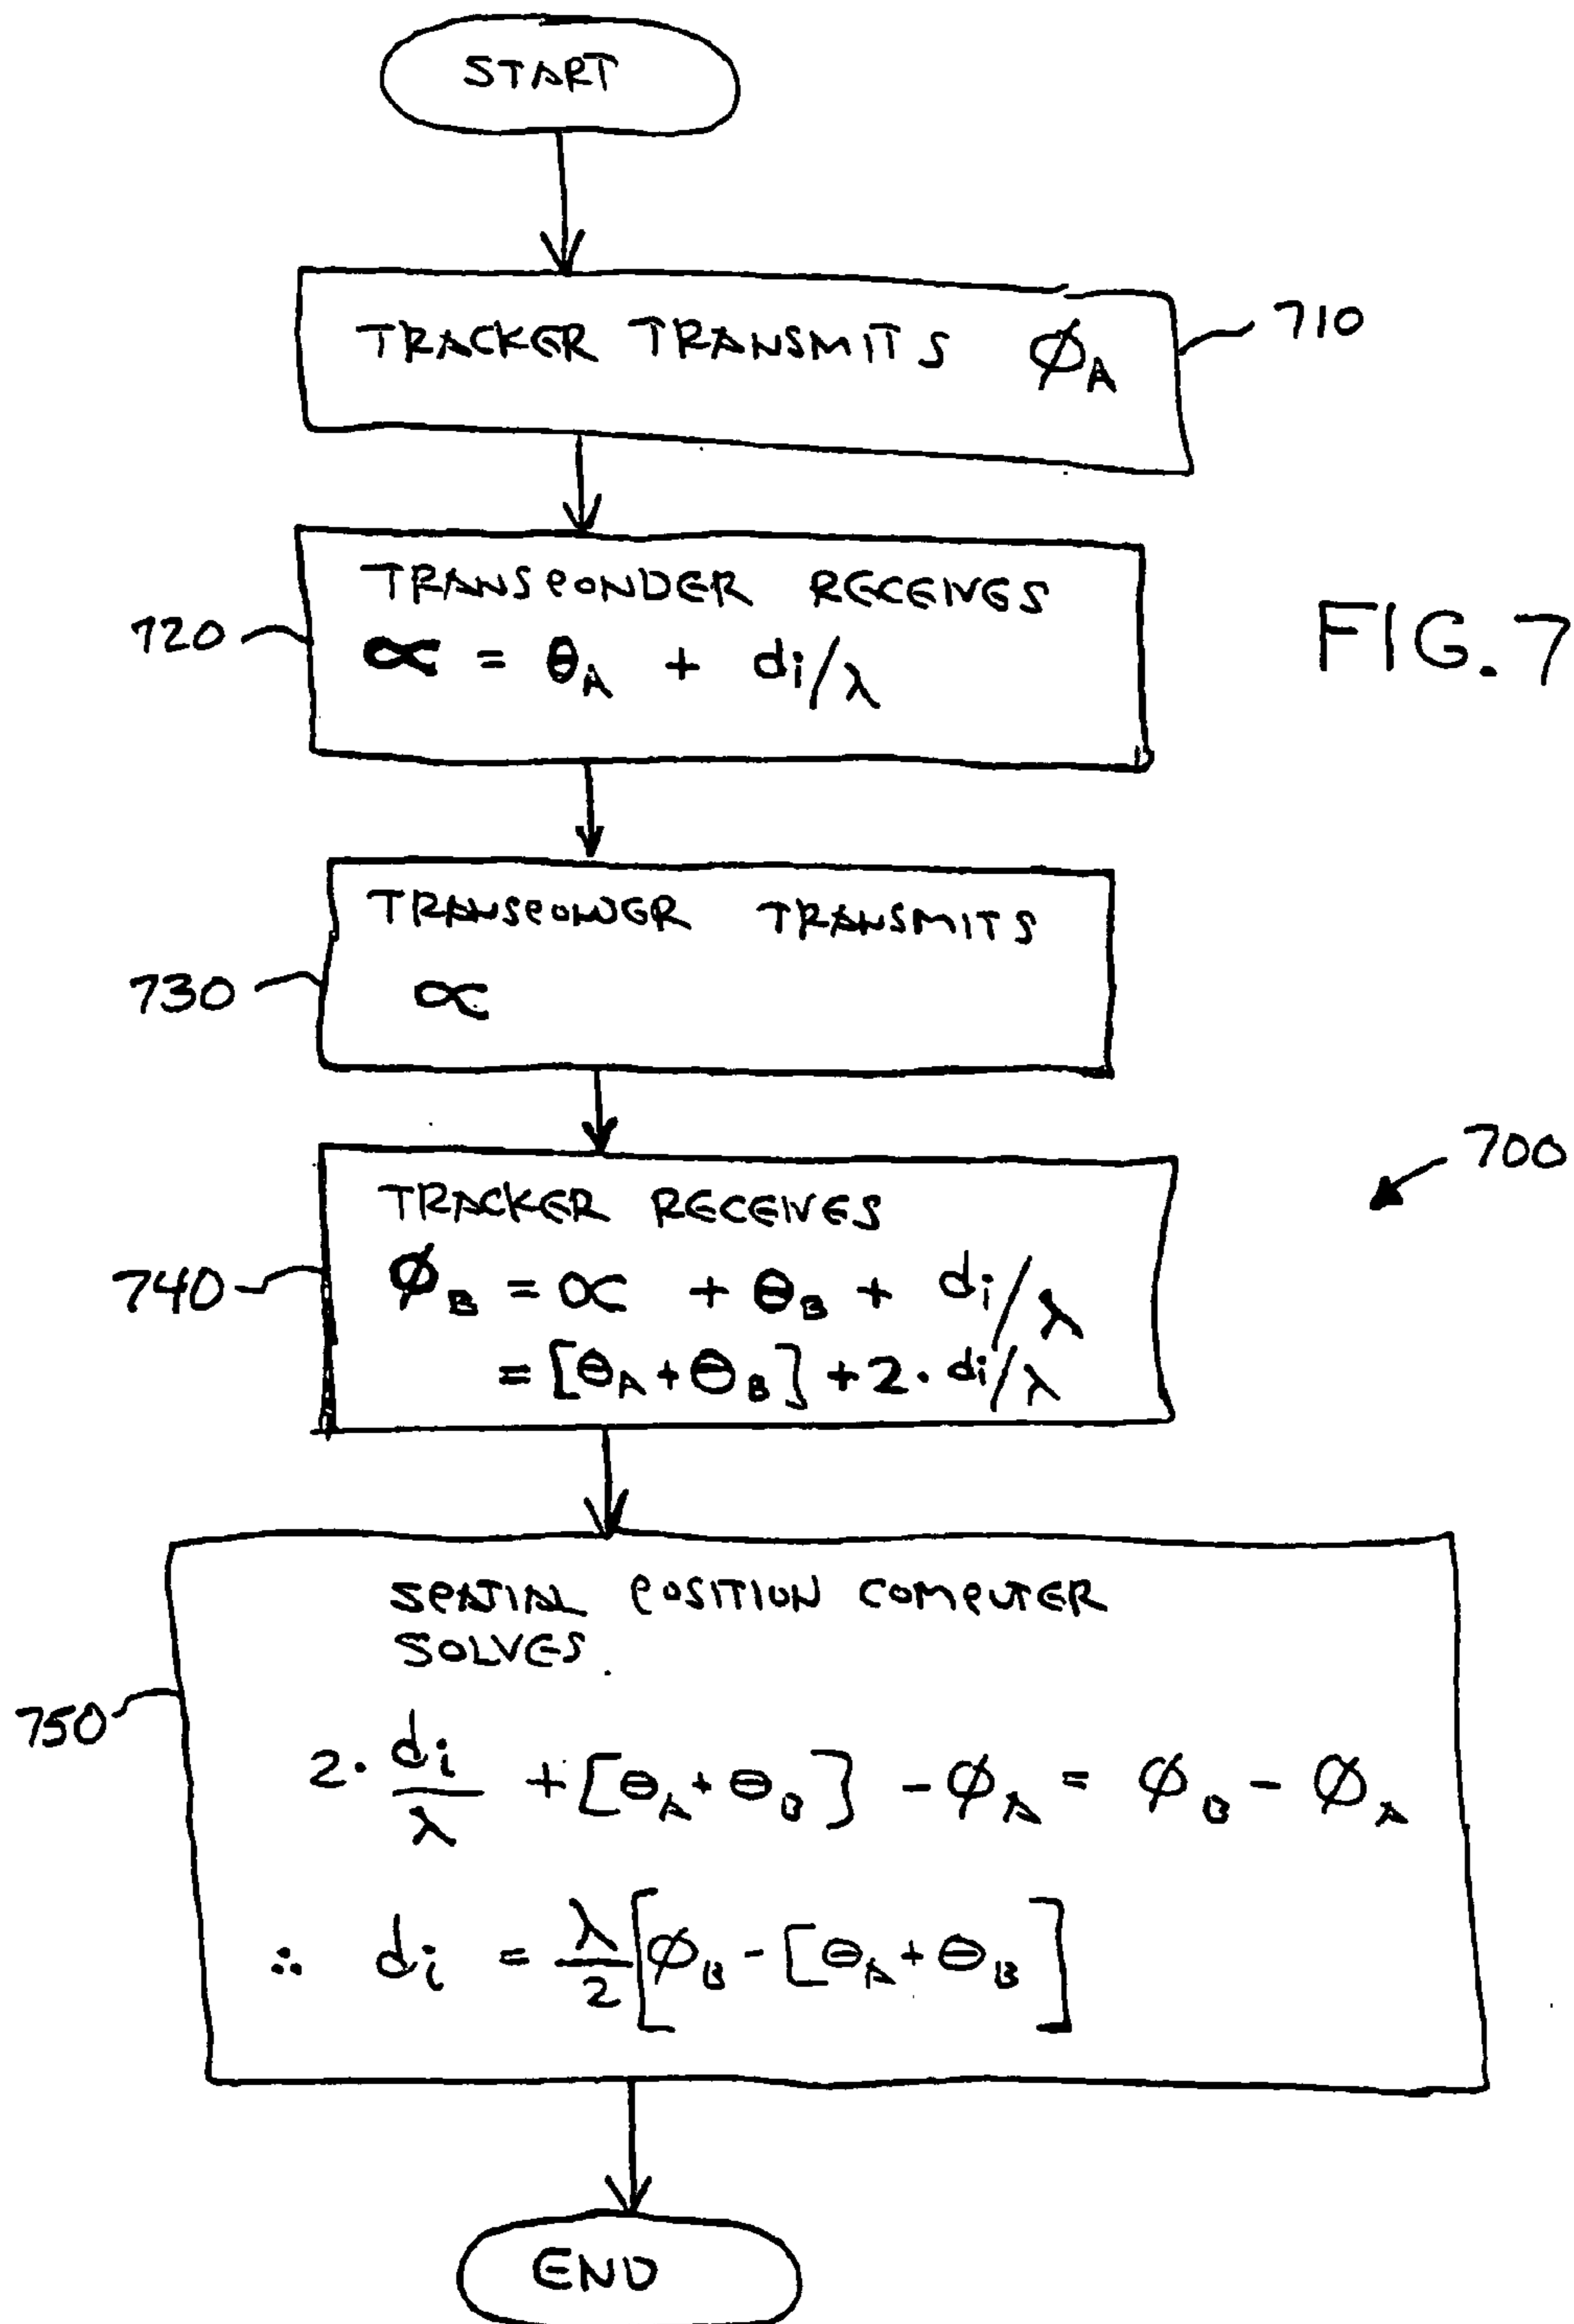 START
TRACKER TRANSMITS ϕA
710
TRANSPONDER RECEIVES
720
∝ = θA + di/λ
FIG. 7
TRANSPONDER TRANSMITS
730
∝
700
TRACKER RECEIVES
740
ϕB = ∝ + θB + di/λ
= [θA + θB] + 2 · di/λ
SPATIAL POSITION COMPUTER
SOLVES
750
2 · di/λ + [θA + θB] - ϕA = ϕB - ϕA
∴ di = λ/2 [ϕB - [θA + θB]
END